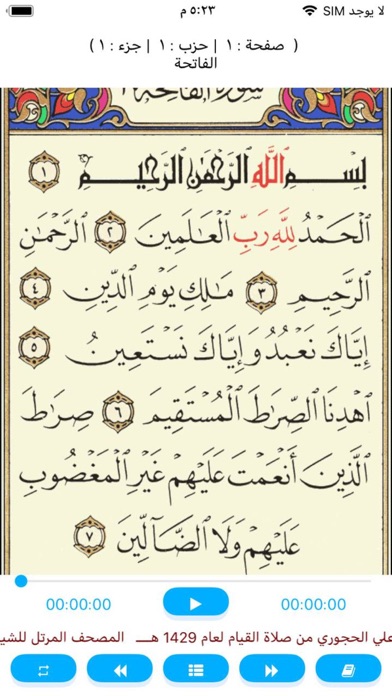 لا يوجد SIM ٥:٢٣ م
( صفحة : ١ | حزب : ١ | جزء : ١ )
الفاتحة
سورة الفاتحة
بِسْمِ اللَّهِ الرَّحْمَٰنِ الرَّحِيمِ ١
الْحَمْدُ لِلَّهِ رَبِّ الْعَالَمِينَ ٢ الرَّحْمَٰنِ
الرَّحِيمِ ٣ مَالِكِ يَوْمِ الدِّينِ ٤
إِيَّاكَ نَعْبُدُ وَإِيَّاكَ نَسْتَعِينُ ٥
اهْدِنَا الصِّرَاطَ الْمُسْتَقِيمَ ٦ صِرَاطَ
الَّذِينَ أَنْعَمْتَ عَلَيْهِمْ غَيْرِ الْمَغْضُوبِ
عَلَيْهِمْ وَلَا الضَّالِّينَ ٧
00:00:00 00:00:00
علي الحجوري من صلاة القيام لعام 1429 هـــ المصحف المرتل